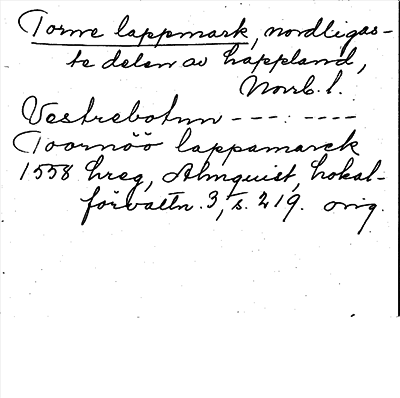 Torne lappmark, nordligas-
te delen av Lappland,
Norrb. l.
Vestrebotnn ---. ----
Toornöö lappamarck
1558 hreg, Almquist, Lokal-
förvaltn. 3, s. 219. orig.